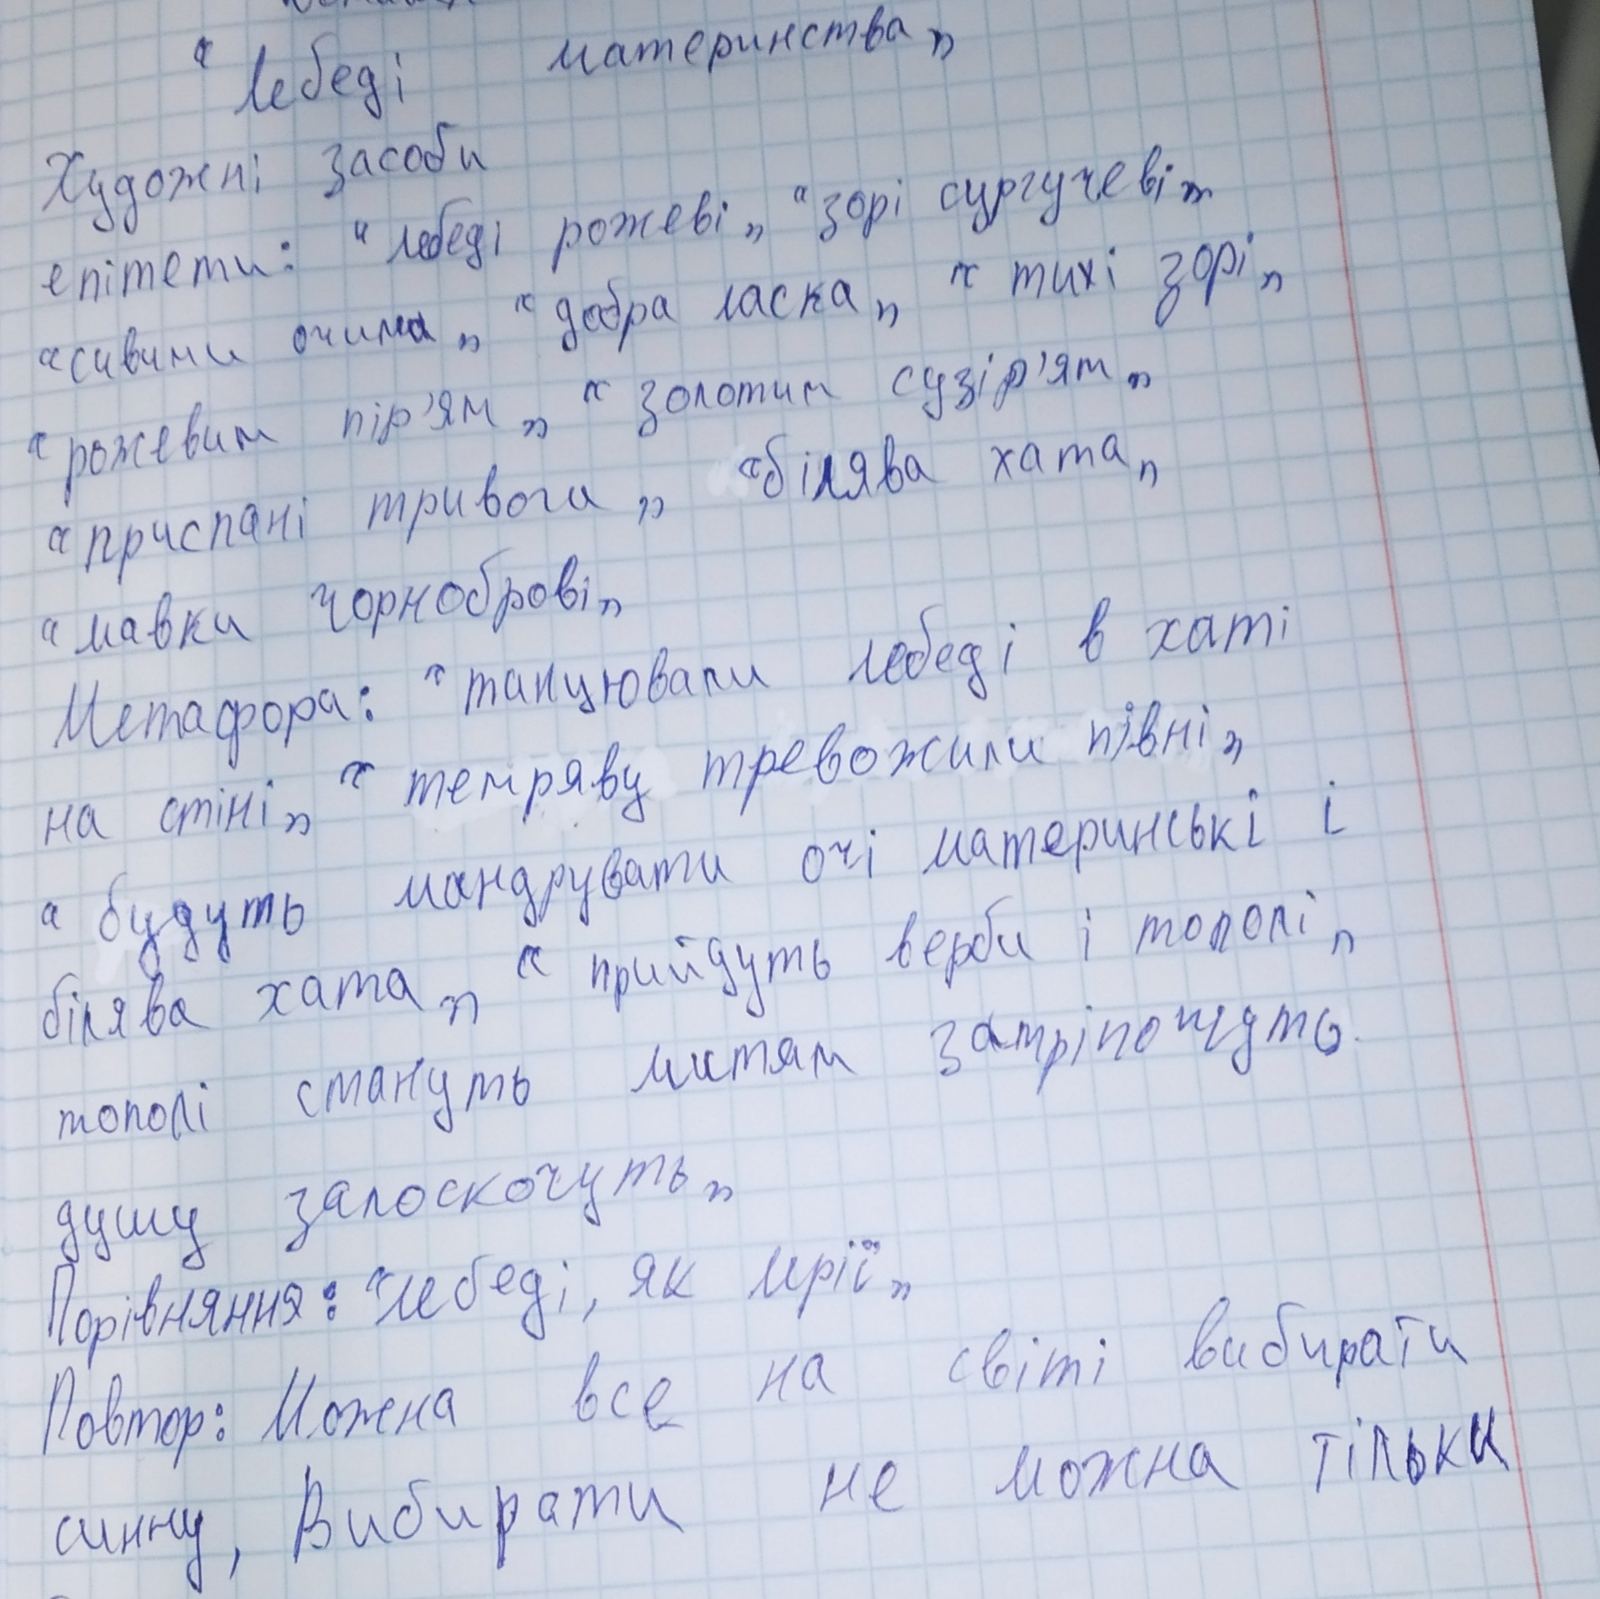 "Лебеді материнства"
Художні засоби
епітети: "лебеді рожеві" "зорі сургучеві"
"сивими очима" "добра ласка" "тихі зорі"
"рожевим пір'ям" "золотим сузір'ям"
"приспані тривоги" "білява хата"
"мавки чорноброві"
Метафора: "танцювали лебеді в хаті
на стіні" "темряву тревожили півні"
"будуть мандрувати очі материнські і
білява хата" "прийдуть верби і тополі"
тополі стануть листям затріпочуть
душу залоскочуть"
Порівняння: "лебеді, як мрії"
Повтор: Можна все на світі вибирати
синну, Вибирати не можна тільки